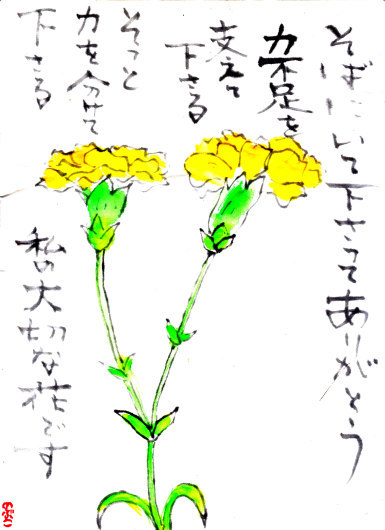 そばにいて下さってありがとう
力不足を
支えて
下さる
そっと
力を分けて
下さる
私の大切な花です